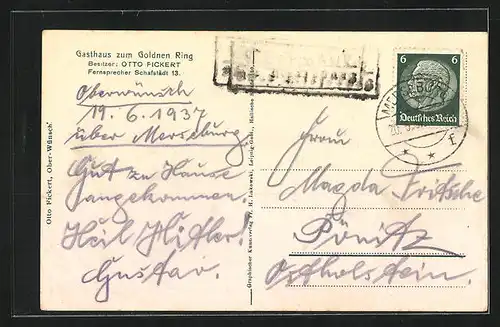 Gasthaus zum Goldnen Ring
Besitzer: OTTO FICKERT
Fernsprecher Schafstädt 13.
Oberwünsch
19. 6. 1937
über Merseburg
Gut zu Hause
angekommen
Heil Hitler!
Gustav.
Otto Fickert, Ober-Wünsch
Graphischer Kunstverlag
6 6
Deutsches Reich
MERSEBURG
Magda Fritsche
Pönitz
Ostholstein.